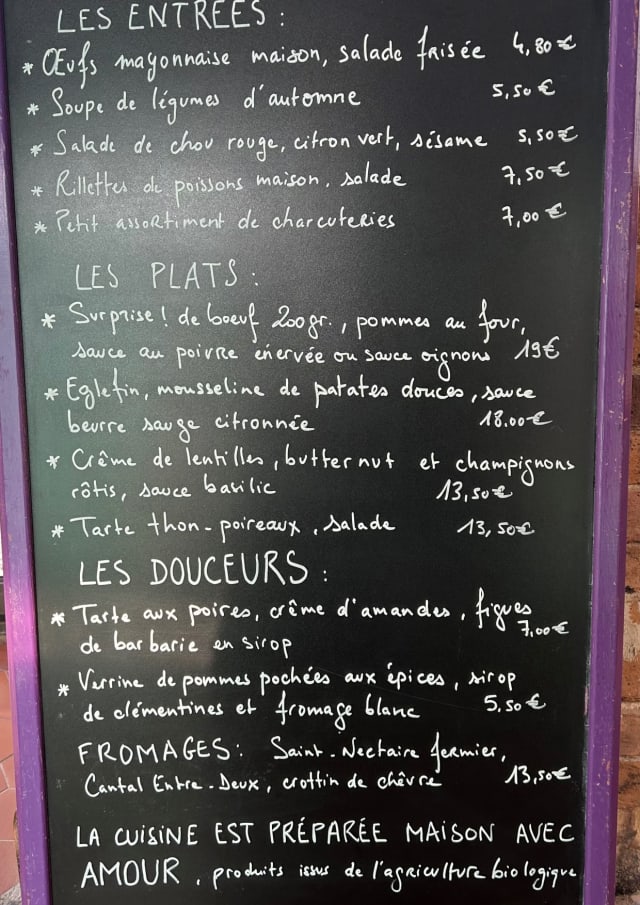 LES ENTRÉES :
* Œufs mayonnaise maison, salade frisée 4,80€
* Soupe de légumes d'automne 5,50€
* Salade de chou rouge, citron vert, sésame 5,50€
* Rillettes de poissons maison, salade 7,50€
* Petit assortiment de charcuteries 7,00€
LES PLATS :
* Surprise! de boeuf 200gr., pommes au four,
sauce au poivre énervée ou sauce oignons 19€
* Eglefin, mousseline de patates douces, sauce
beurre sauge citronnée 18.00€
* Crême de lentilles, butternut et champignons
rôtis, sauce basilic 13,50€
* Tarte thon-poireaux, salade 13,50€
LES DOUCEURS :
* Tarte aux poires, crême d'amandes, figues
de barbarie en sirop 7,00€
* Verrine de pommes pochées aux épices, sirop
de clémentines et fromage blanc 5.50€
FROMAGES: Saint-Nectaire fermier,
Cantal Entre-Deux, crottin de chêvre 13,50€
LA CUISINE EST PRÉPARÉE MAISON AVEC
AMOUR, produits issus de l'agriculture biologique